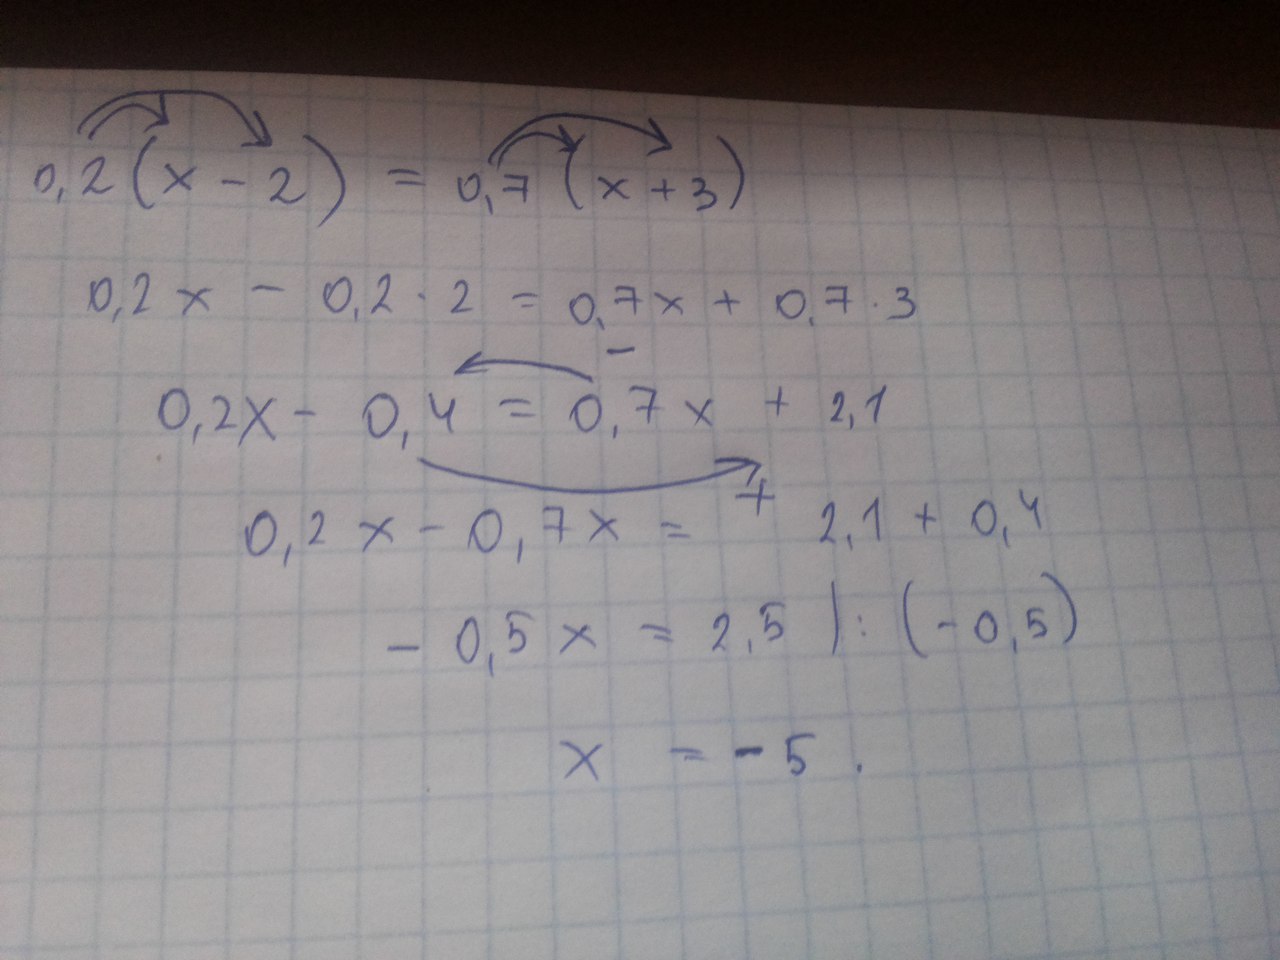 0,2(x - 2) = 0,7(x + 3)
0,2x - 0,2 · 2 = 0,7x + 0,7 · 3
-
0,2x - 0,4 = 0,7x + 2,1
+
0,2x - 0,7x = 2,1 + 0,4
- 0,5x = 2,5 | : (-0,5)
x = - 5.